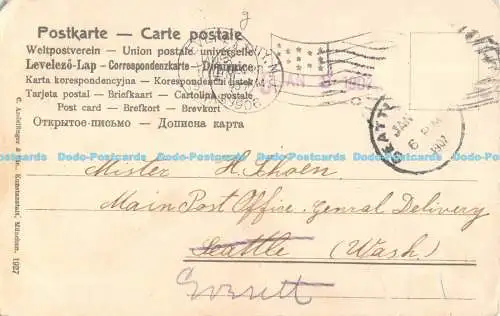 g
Postkarte - Carte postale
Weltpostverein - Union postale universelle
Levelező-Lap - Correspondenzkarte - Dopisnice
Karta korespondencyjna - Korespondenční listek
Tarjeta postal - Briefkaart - Cartolina postale
Post card - Brefkort - Brevkort
Открытое-письмо - Дописна карта
1906
JAN 1907
SEATTLE
JAN
6 PM
1907
Dodo-Postcards Dodo-Postcards Dodo-Postcards Dodo-Postcards Dodo-Postcards Dodo-Postcards Dodo-Postcards
Mister H. Schoen
Main Post Office. Genral Delivery
Seattle (Wash)
Everett
Kunstanstalt, München. 1927